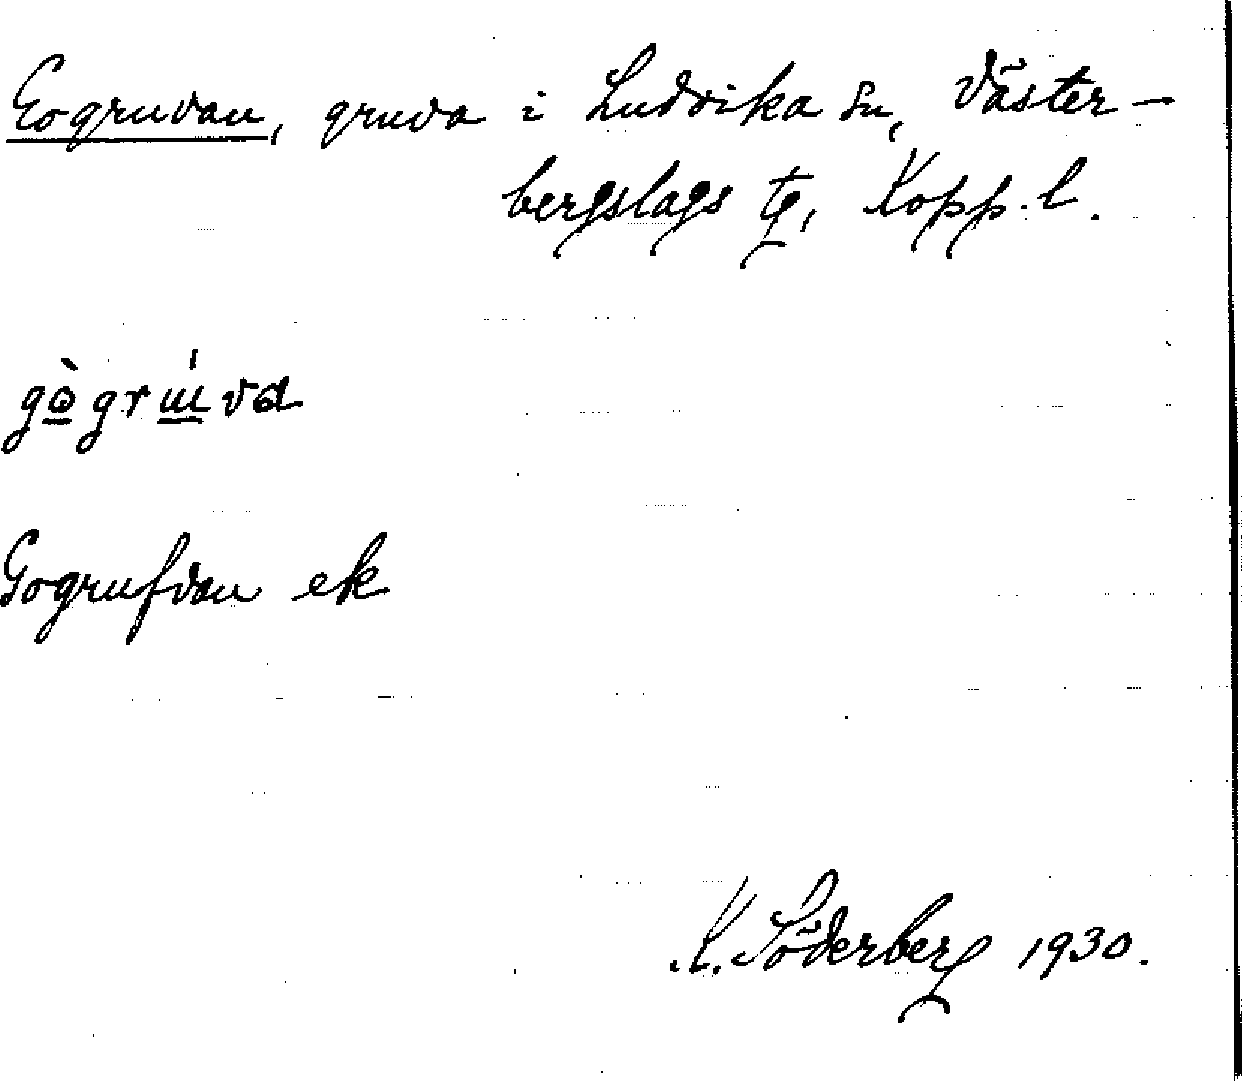 Gogruvan, gruva i Ludvika sn, Väster-
bergslags tg, Kopp. l.
gògrúva
Gogrufvan ek
K. Söderberg 1930.